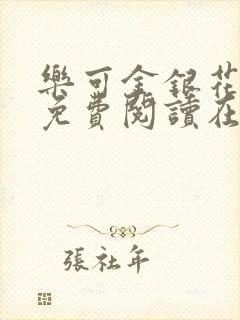 樂可金銀花
免費閱讀在
張社年